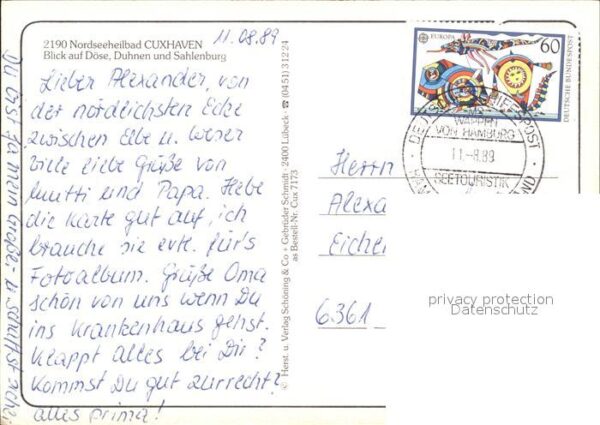 2190 Nordseeheilbad CUXHAVEN
Blick auf Döse, Duhnen und Sahlenburg
11.08.89
Lieber Alexander, von
der nördlichsten Ecke
zwischen Elbe u. Weser
viele liebe Grüße von
Mutti und Papa. Hebe
die Karte gut auf, ich
brauche sie evtl. für's
Fotoalbum. Grüße Oma
schön von uns wenn Du
ins Krankenhaus gehst.
Klappt alles bei Dir?
Kommst Du gut zurrecht?
alles prima!
Du bist ja mein Großer u. schaffst
© Herst. u. Verlag Schöning & Co + Gebrüder Schmidt · 2400 Lübeck · ☎ (04 51) 3 12 24
as Bestell-Nr. Cux 7173
EUROPA
60
DEUTSCHE BUNDESPOST
DEUTSCHE SCHIFFSPOST
MS
WAPPEN
VON HAMBURG
11.-8.89
SEETOURISTIK
Herrn
Alexa
Eichen
6361
privacy protection
Datenschutz